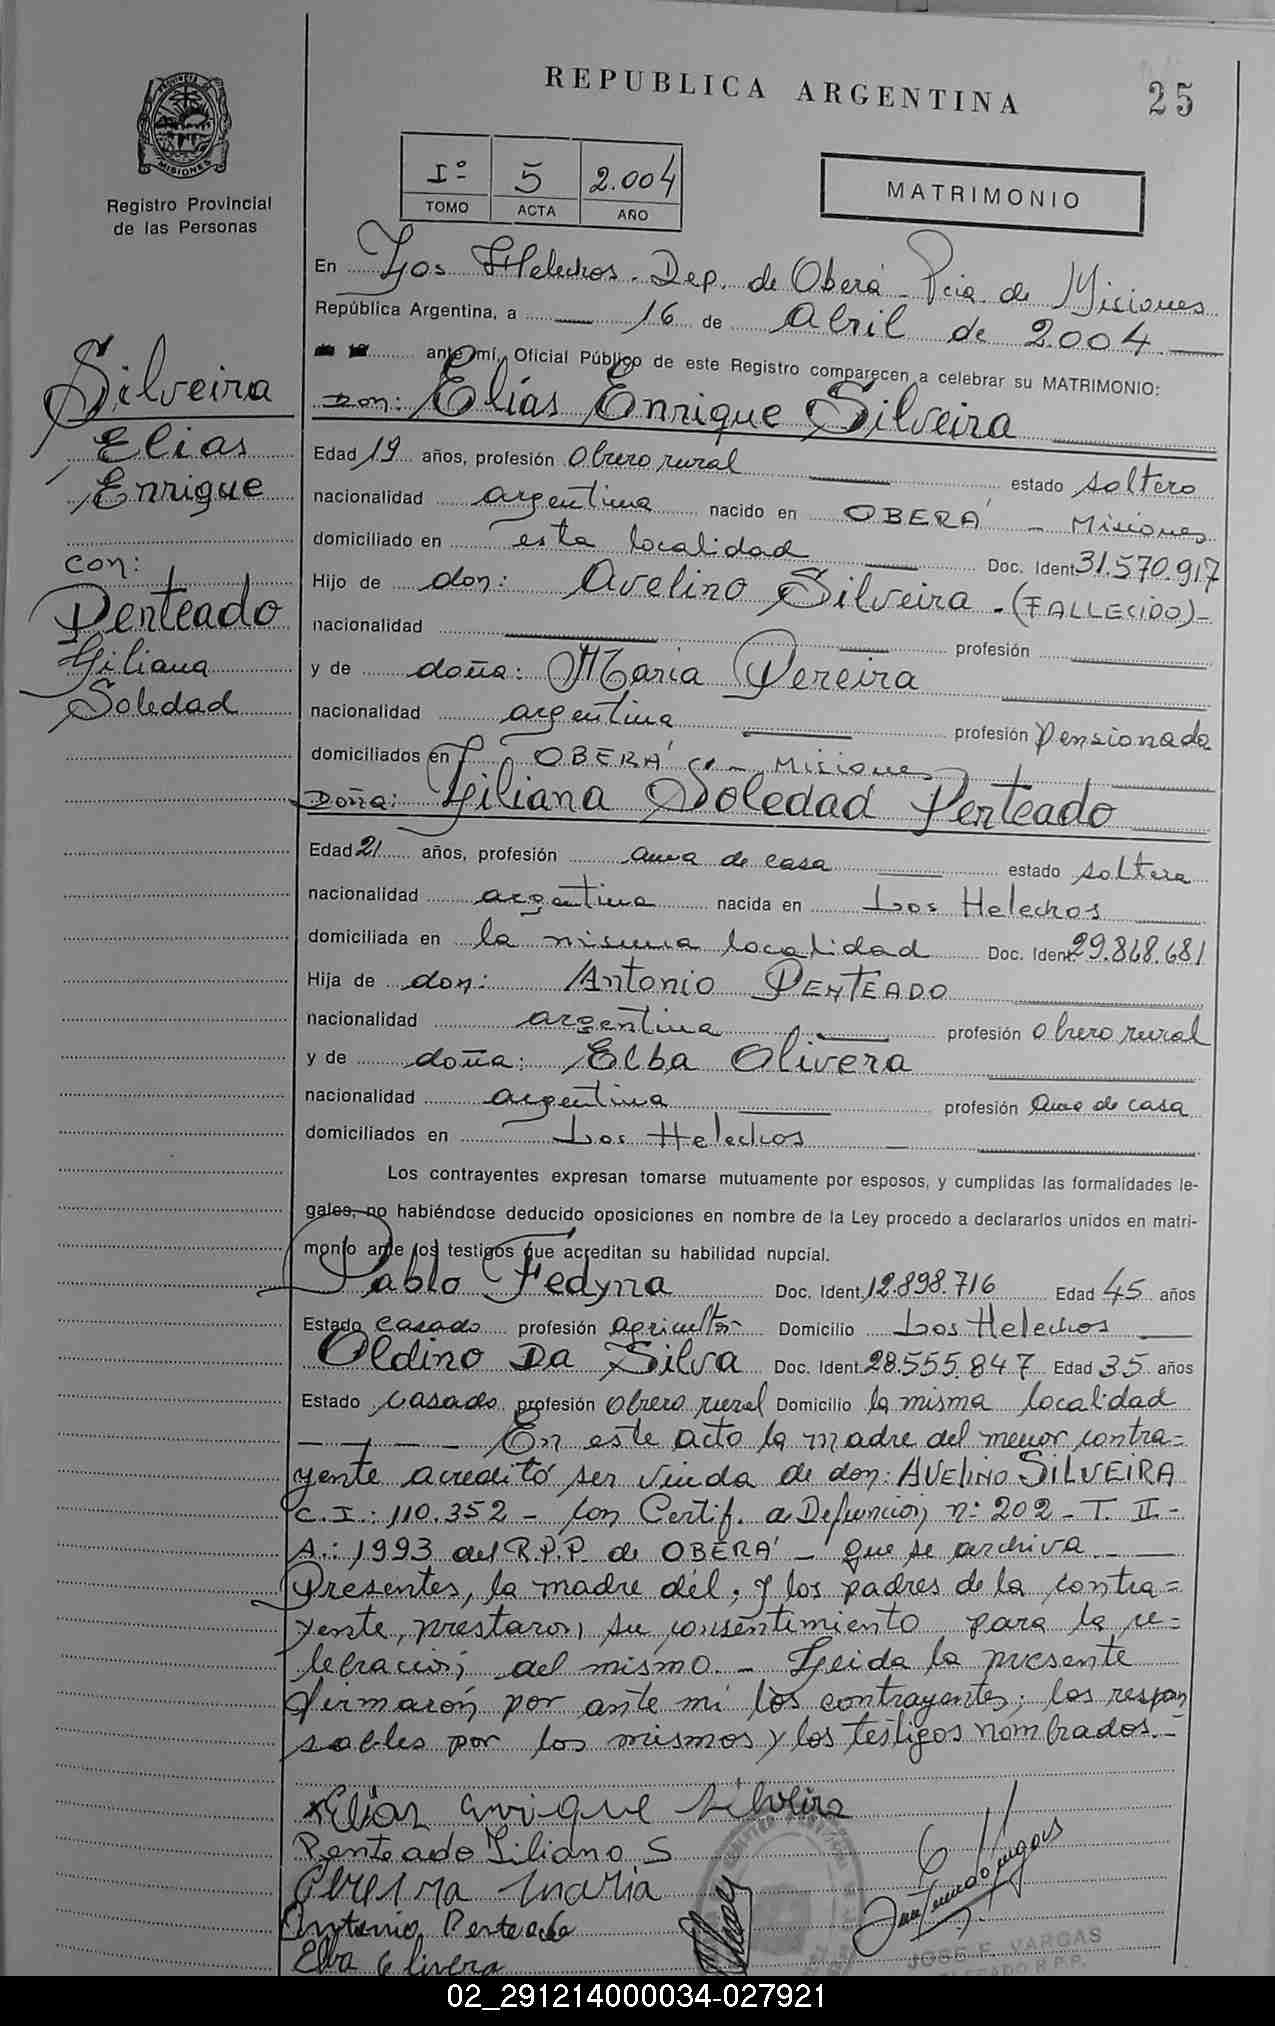 REPUBLICA ARGENTINA
25
PROVINCIA DE
MISIONES
Registro Provincial
de las Personas
Iº 5 2.004
TOMO ACTA AÑO
MATRIMONIO
En Los Helechos. Dep. de Oberá - Pcia. de Misiones
República Argentina, a 16 de Abril de 2.004.
ante mí, Oficial Público de este Registro comparecen a celebrar su MATRIMONIO:
Silveira
Elias
Enrique
con:
Penteado
Liliana
Soledad
Don: Elías Enrique Silveira
Edad 19 años, profesión Obrero rural estado soltero
nacionalidad argentina nacido en OBERÁ - Misiones
domiciliado en esta localidad Doc. Ident. 31.570.917
Hijo de don: Avelino Silveira - (FALLECIDO) -
nacionalidad profesión
y de doña: Maria Pereira
nacionalidad argentina profesión Pensionada
domiciliados en OBERÁ - Misiones
Doña: Liliana Soledad Penteado
Edad 21 años, profesión ama de casa estado soltera
nacionalidad argentina nacida en Los Helechos
domiciliada en la misma localidad Doc. Ident. 29.868.681
Hija de don: Antonio PENTEADO
nacionalidad argentina profesión obrero rural
y de doña: Elba Olivera
nacionalidad argentina profesión Ama de casa
domiciliados en Los Helechos
Los contrayentes expresan tomarse mutuamente por esposos, y cumplidas las formalidades le-
gales, no habiéndose deducido oposiciones en nombre de la Ley procedo a declararlos unidos en matri-
monio ante los testigos que acreditan su habilidad nupcial.
Pablo Fedyna Doc. Ident. 12.898.716 Edad 45 años
Estado casado profesión agricultor Domicilio Los Helechos
Oldino Da Silva Doc. Ident. 28.555.847 Edad 35 años
Estado casado profesión obrero rural Domicilio la misma localidad
- - - - En este acto la madre del menor contra=
yente acreditó ser viuda de don: AVELINO SILVEIRA
C.I.: 110.352 - con Certif. de Defunción nº 202 - T. II -
A.: 1993 del R.P.P. de OBERÁ - que se archiva.
Presentes, la madre dél; y los padres de la contra=
yente, prestaron su consentimiento para la ce=
lebración del mismo. - Leida la presente
firmaron por ante mí los contrayentes; los respon
sables por los mismos y los testigos nombrados. -
Elias enrique Silveira
Penteado Liliana S
Pereira Maria
Antonio Penteado
Elba Olivera
JOSE F. VARGAS
R.P.P.
02_291214000034-027921